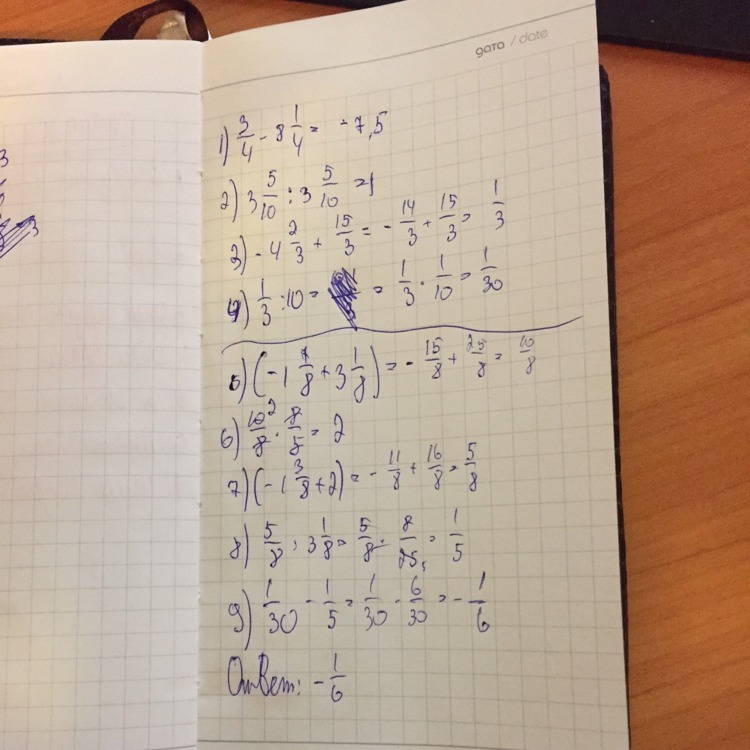 дата / date
1) 3/4 - 8 1/4 = -7,5
2) 3 5/10 : 3 5/10 = 1
3) -4 2/3 + 15/3 = -14/3 + 15/3 = 1/3
4) 1/3 : 10 = = 1/3 · 1/10 = 1/30
5) (-1 7/8 + 3 1/8) = -15/8 + 25/8 = 10/8
6) 10/8 ² · 8/5 = 2
7) (-1 3/8 + 2) = -11/8 + 16/8 = 5/8
8) 5/8 : 3 1/8 = 5/8 · 8/25 = 1/5
9) 1/30 - 1/5 = 1/30 - 6/30 = -1/6
Ответ: -1/6